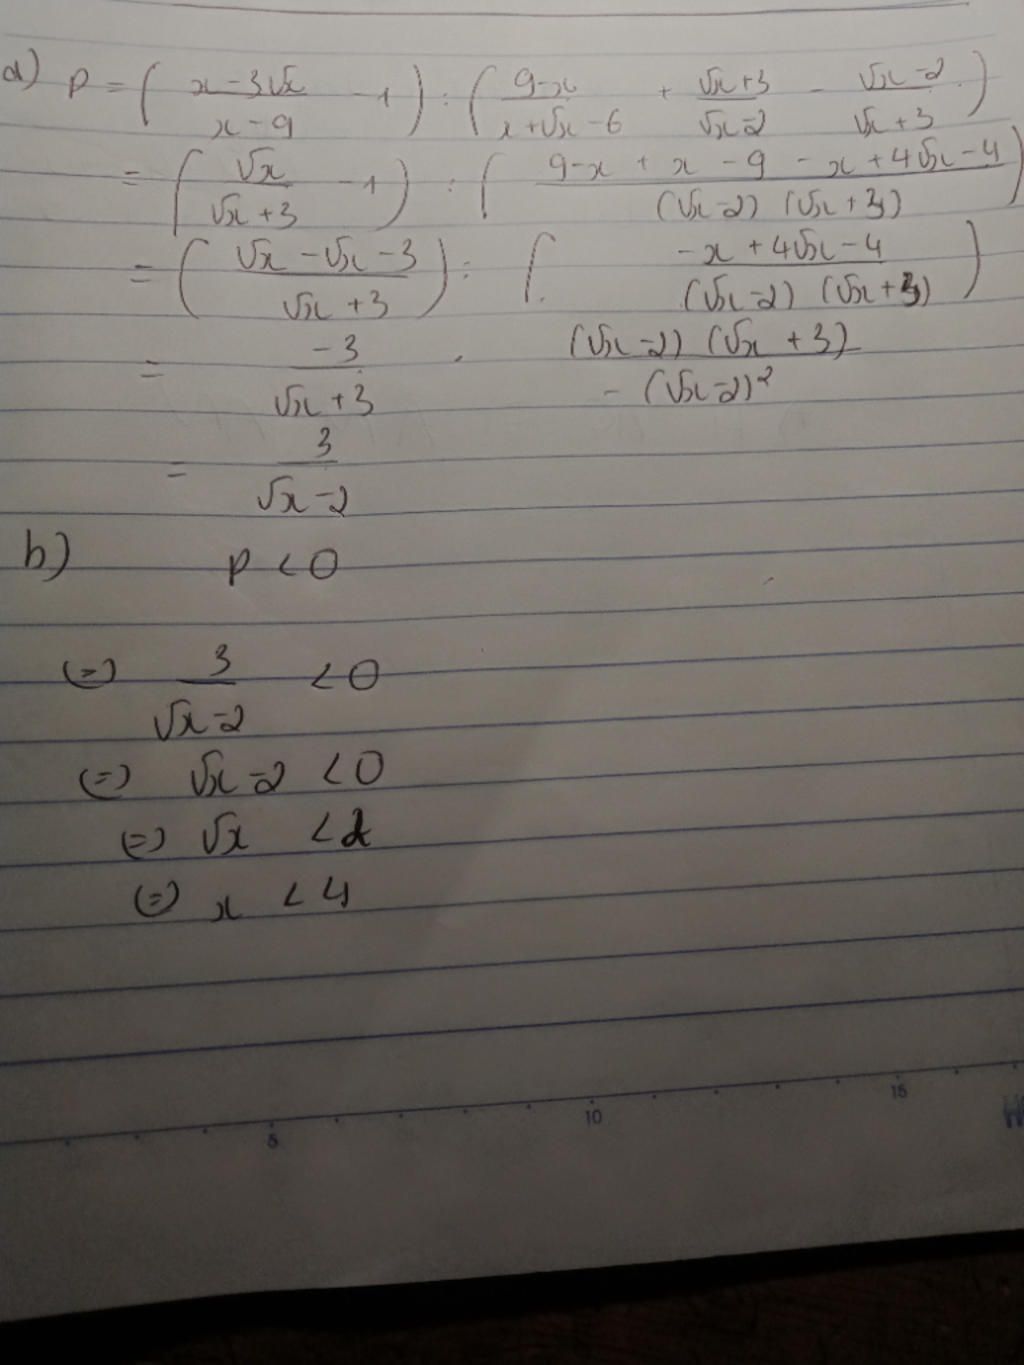 a) P = ( x-3√x / x-9 - 1 ) : ( 9-x / x+√x-6 + √x+3 / √x-2 - √x-2 / √x+3 )
= ( √x / √x+3 - 1 ) : ( 9-x + x - 9 - x + 4√x - 4 / (√x-2) (√x+3) )
= ( √x - √x - 3 / √x+3 ) : ( -x + 4√x - 4 / (√x-2) (√x+3) )
= -3 / √x+3 . (√x-2) (√x+3) / - (√x-2)²
= 3 / √x-2
b) P < 0
(=) 3 / √x-2 < 0
(=) √x-2 < 0
(=) √x < 2
(=) x < 4
5 10 15
H